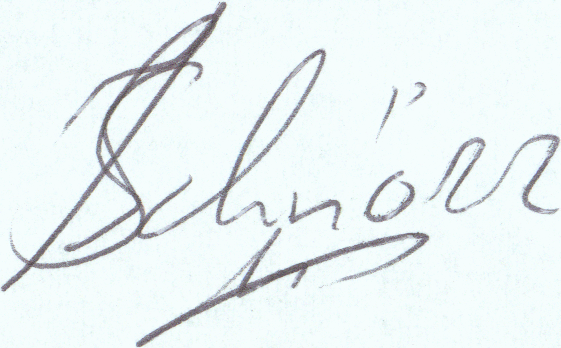 Schnörr